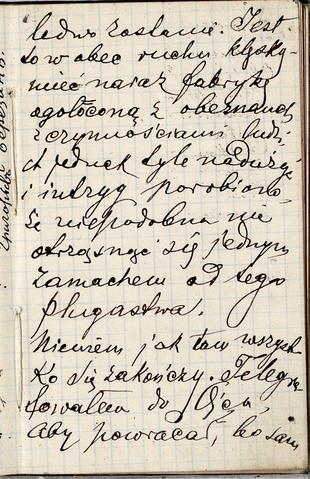 ledwo zostanie. Jest
to w obec ruchu klęską
mieć naraz fabrykę
ogołoconą z obeznanych
z czynnościami ludzi
jednak tyle nadużyć
i intryg porobiono
że niepodobna nie
otrząsnąć się jednym
zamachem od tego
plugastwa.
Niewiem jak tam wszyst-
ko się zakończy. Telegra-
fowałem do Ojca,
aby powracał, bo sam